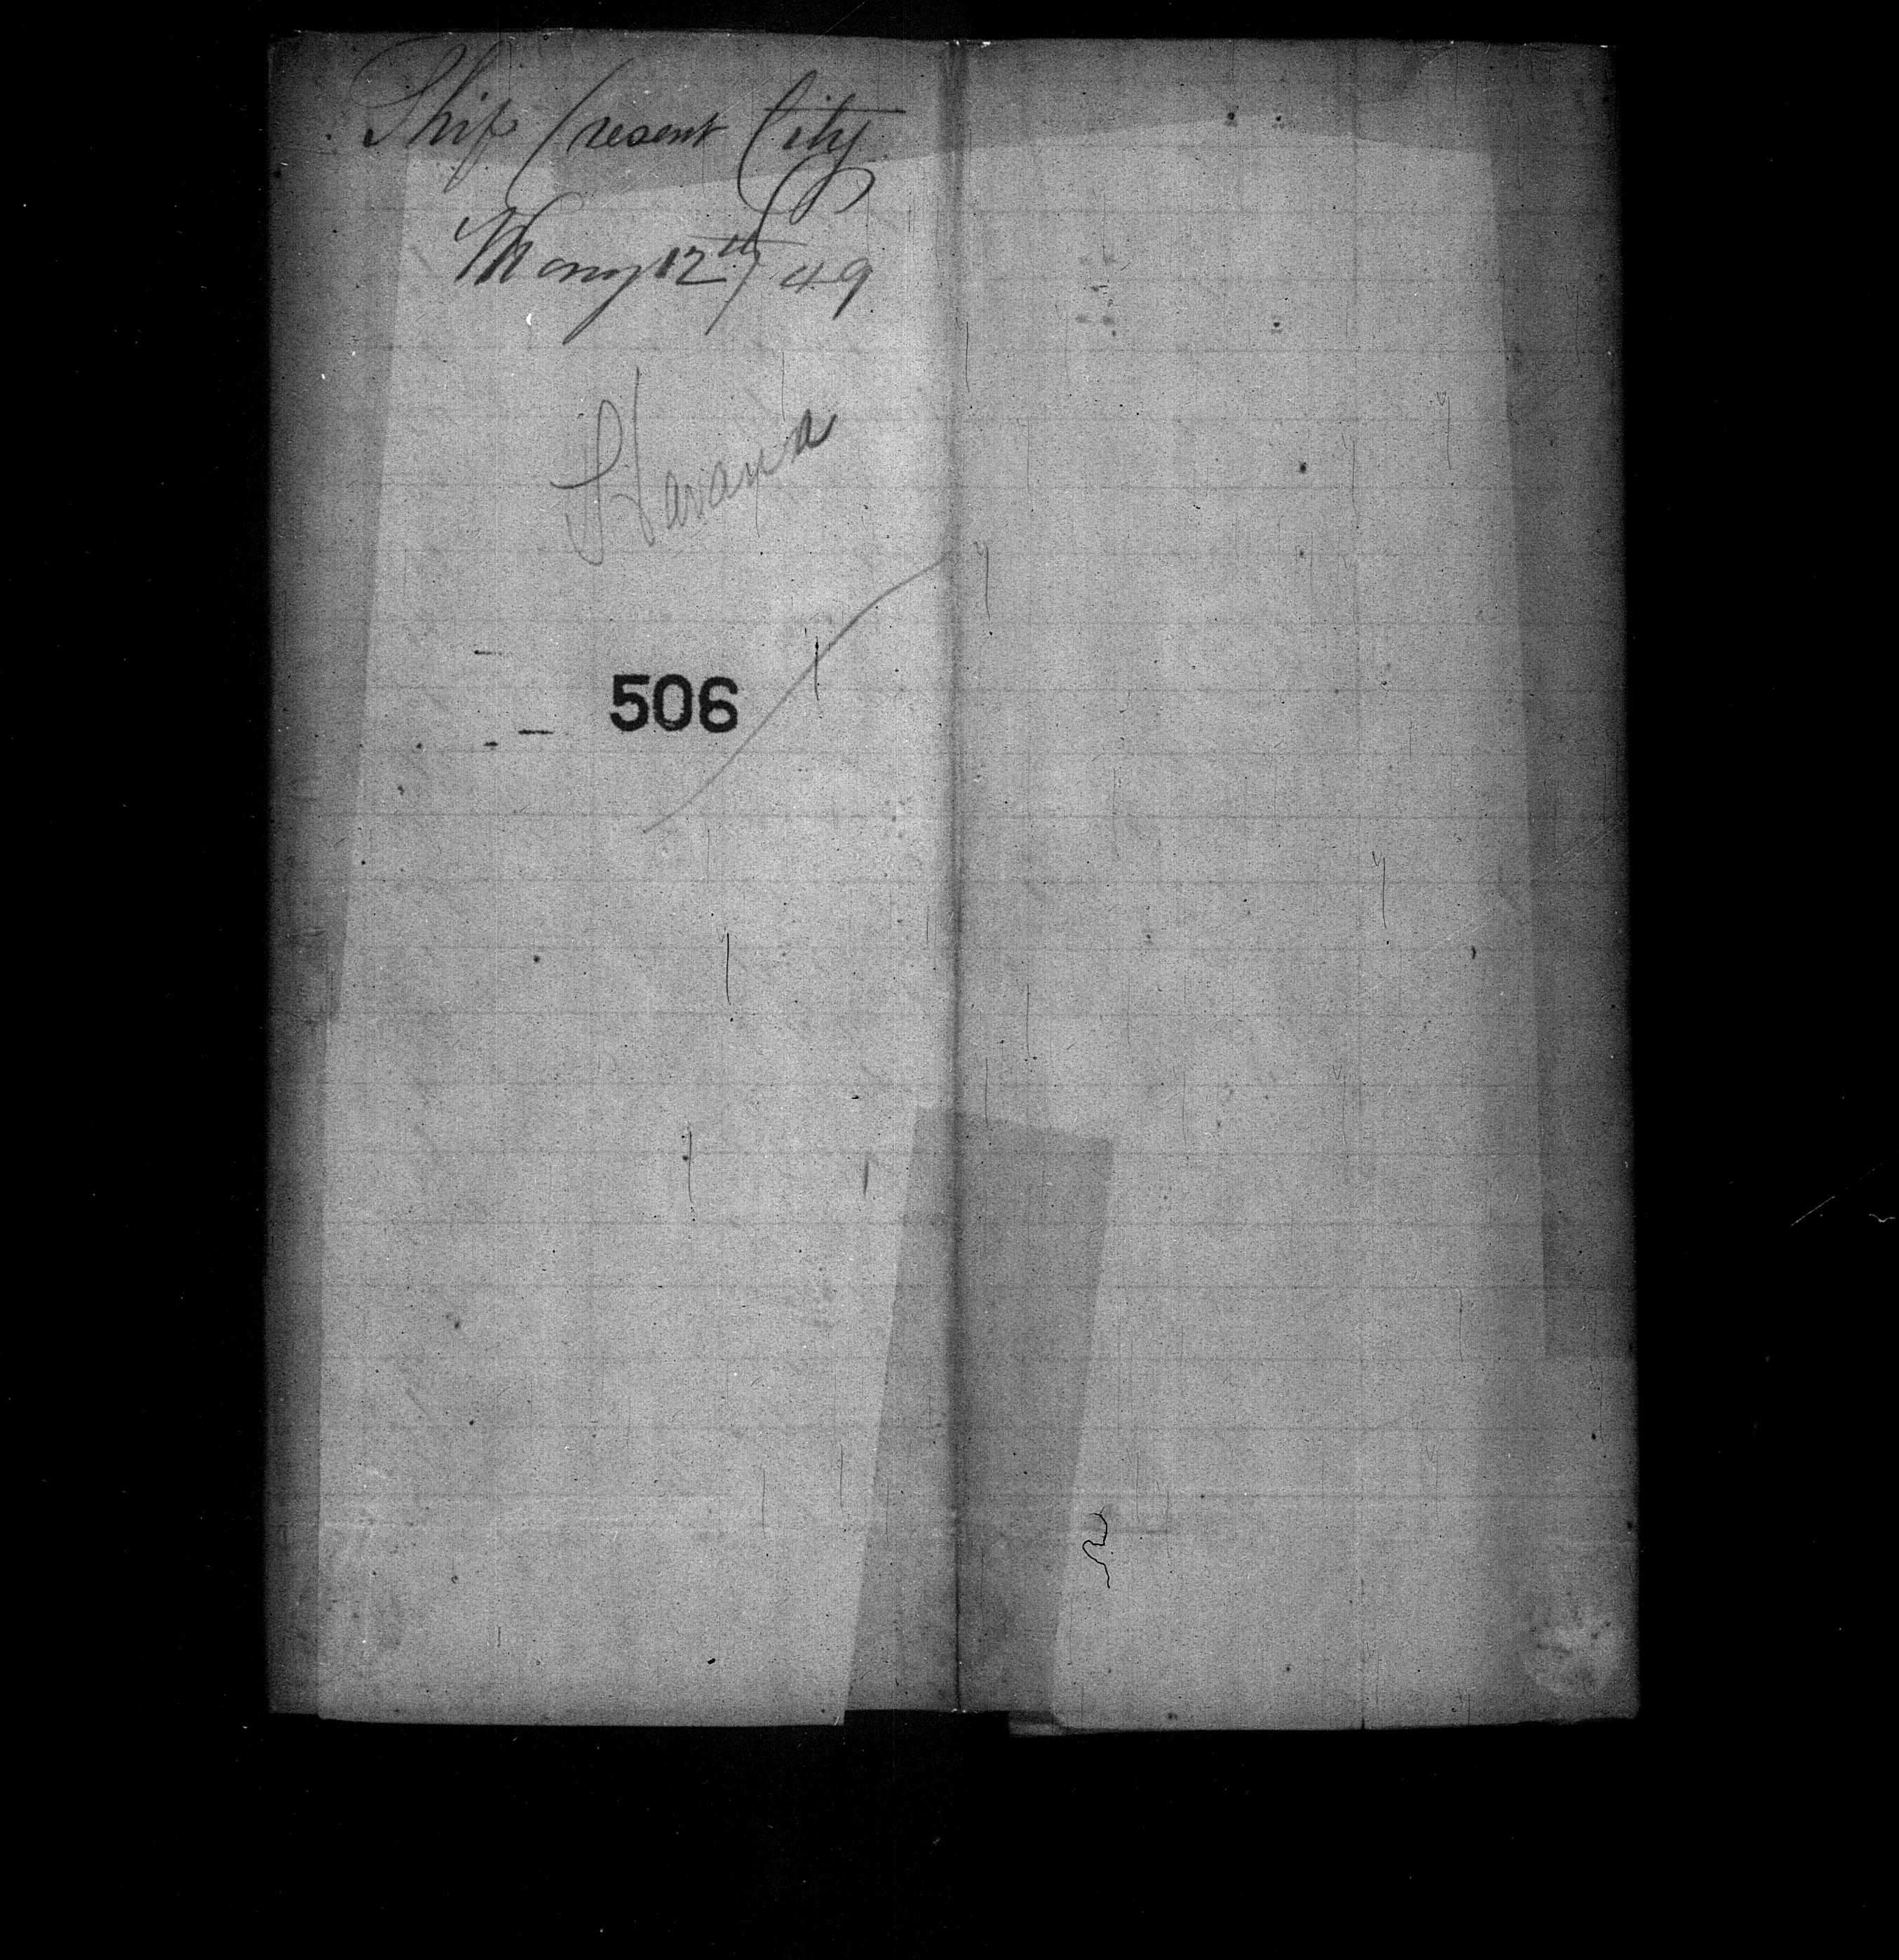 Ship Cresent City
May 12th / 49
Havana
506